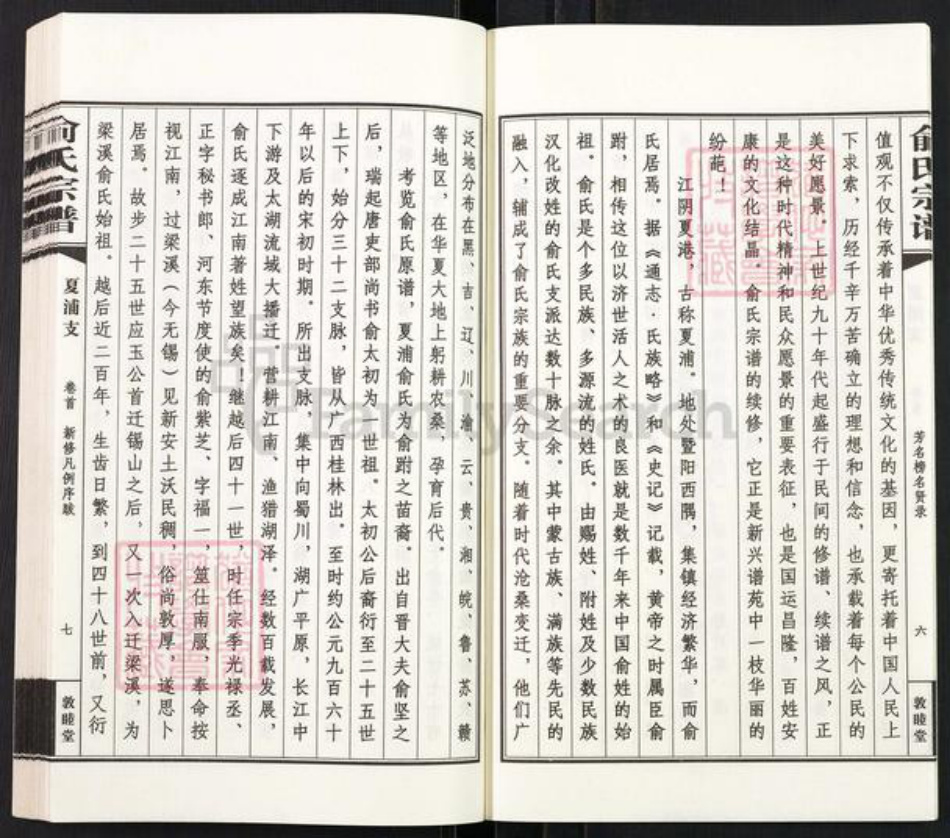 俞氏宗谱
芳名榜名贤录
六
敦睦堂
值观不仅传承着中华优秀传统文化的基因，更寄托着中国人民上
下求索，历经千辛万苦确立的理想和信念，也承载着每个公民的
美好愿景。上世纪九十年代起盛行于民间的修谱、续谱之风，正
是这种时代精神和民众愿景的重要表征，也是国运昌隆，百姓安
康的文化结晶。俞氏宗谱的续修，它正是新兴谱苑中一枝华丽的
纷葩！
江阴夏港，古称夏浦。地处暨阳西隅，集镇经济繁华，而俞
氏居焉。据《通志·氏族略》和《史记》记载，黄帝之时属臣俞
跗，相传这位以济世活人之术的良医就是数千年来中国俞姓的始
祖。俞氏是个多民族、多源流的姓氏。由赐姓、附姓及少数民族
汉化改姓的俞氏支派达数十脉之余。其中蒙古族、满族等先民的
融入，辅成了俞氏宗族的重要分支。随着时代沧桑变迁，他们广
泛地分布在黑、吉、辽、川、渝、云、贵、湘、皖、鲁、苏、赣
等地区，在华夏大地上躬耕农桑，孕育后代。
考览俞氏原谱，夏浦俞氏为俞跗之苗裔。出自晋大夫俞坚之
后，瑞起唐吏部尚书俞太初为一世祖。太初公后裔衍至二十五世
上下，始分三十二支脉，皆从广西桂林出。至时约公元九百六十
年以后的宋初时期。所出支脉，集中向蜀川，湖广平原，长江中
下游及太湖流域大播迁。营耕江南、渔猎湖泽。经数百载发展，
俞氏逐成江南著姓望族矣！继越后四十一世，时任宗季光禄丞、
正字秘书郎、河东节度使的俞紫芝、字福一，筮仕南服，奉命按
视江南，过梁溪（今无锡）见新安土沃民稠，俗尚敦厚，遂思卜
居焉。故步二十五世应玉公首迁锡山之后，又一次入迁梁溪，为
梁溪俞氏始祖。越后近二百年，生齿日繁，到四十八世前，又衍
俞氏宗谱
夏浦支
卷首 新修凡例序跋
七
敦睦堂
FamilySearch